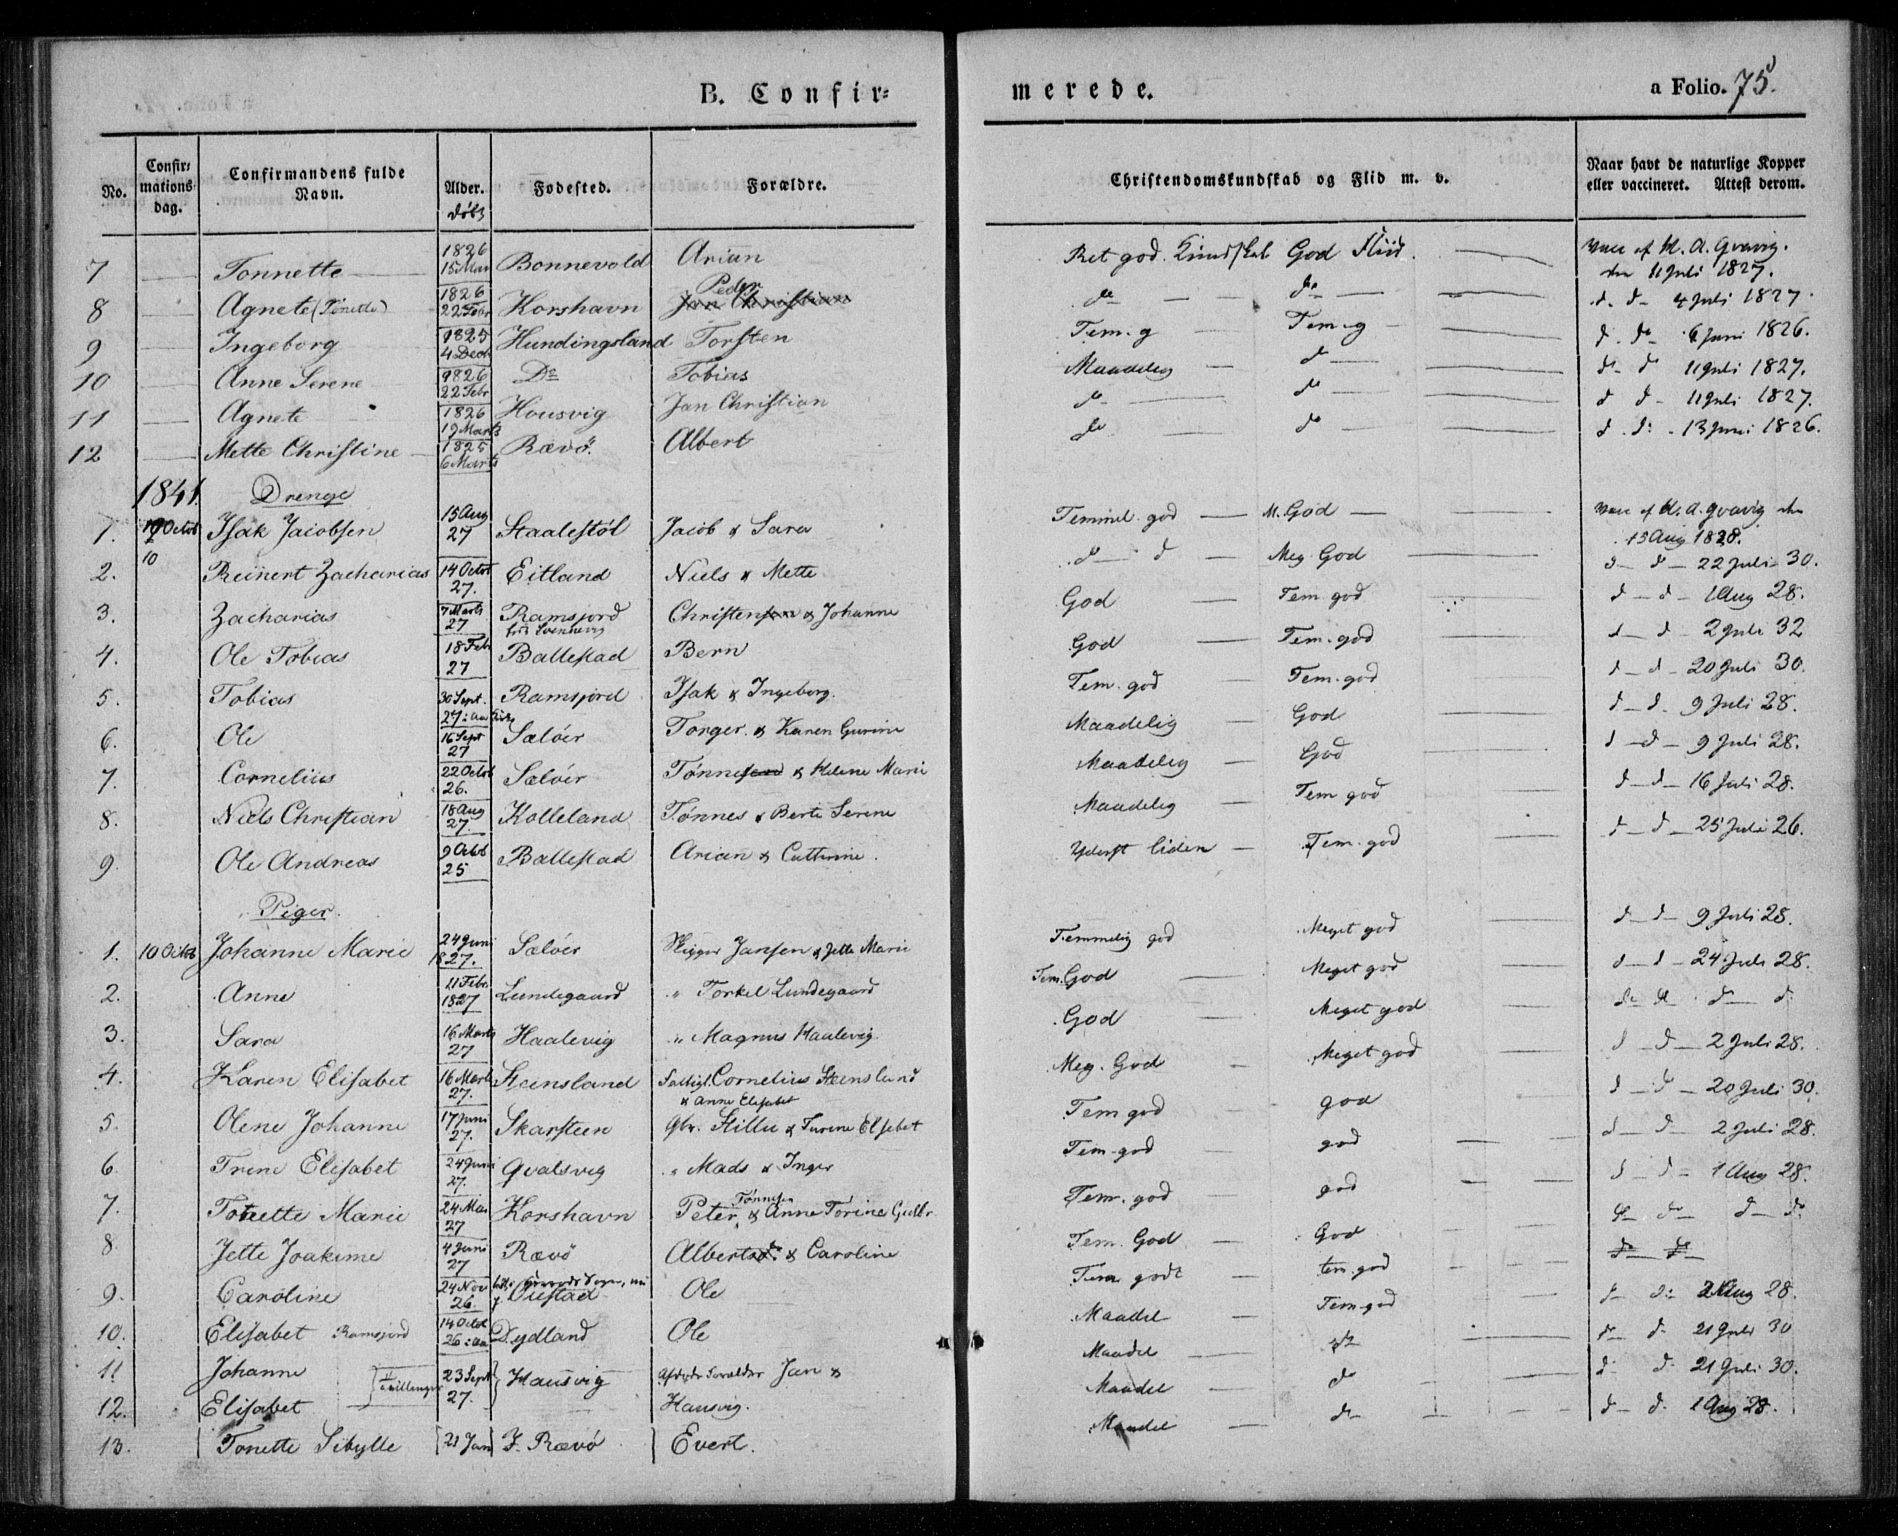 B. Confir=
merede.
a Folio. 75.
No.
Confir=
mations
dag.
Confirmandens fulde
Navn.
Alder.
døbt
Fødested.
Forældre.
Christendomskundskab og Flid m. v.
Naar havt de naturlige Kopper
eller vaccineret. Attest derom.
7 Tonnette 1826 15 Mar Bonnevold Arian Ret god Kundskab God Fliid. Vacc af H. A. Qvavig. den 11 Juli 1827.
8 Agnete (Tønette) 1826 22 Febr Korshavn Jan Christian Peder do do d. do 4 Juli 1827.
9 Ingeborg 1825 4 Decb Hundingsland Torsten Tem. g Tem. g d. do 6 Juni 1826.
10 Anne Serene 1826 22 Febr Do Tobias Maadelig do do d 11 Juli 1827.
11 Agnete 1826 19 Marts Housvig Jan Christian do do d d 11 Juli 1827.
12 Mette Christine 1825 6 Marts Rævø. Albert do do d. d: 13 Juni 1826.
1841. Drenge
1. 10 Octob Isak Jacobsen 15 Aug 27 Staalestøl Jacob & Sara Temmel. god M. God Vacc af H. A. Qvavig den 15 Aug 1828.
10
2. Reinert Zacharias 14 Octob 27. Eitland Niels & Mette do d Meg God d do 22 Juli 30.
3. Zacharias 7 Marts 27 Ramsjord fød Svennevig Christensen & Johanne God Tem god d d 1 Aug 28.
4. Ole Tobias 18 Feb 27 Ballestad Bern God Tem. god d d 2 Juli 32
5. Tobias 30 Sept. 27: Ramsjord Isak & Ingeborg. Tem. god Tem. god d d 20 Juli 30.
6. Ole 16 Sept 27 Sæløer Torger & Karen Gurine Maadelig God d d 9 Juli 28.
7. Cornelius 22 Octob 26. Sæløer Tønnesen & Helene Marie Maadelig God d d 9 Juli 28.
8. Niels Christian 18 Aug 27. Kolleland Tønnes & Berte Serene Maadelig Tem god d d 16 Juli 28.
9. Ole Andreas 9 Octb 25 Ballestad Arian & Cathrine. Yderst liden Tem. god d d 25 Juli 26.
Piger.
1. 10 Octob Johanne Marie 24 Juni 1827. Sæløer Skipper Jansen & Jette Marie Temmelig god Meget god d d 9 Juli 28.
2. Anne 11 Febr. 1827 Lundegaard " Torkel Lundegaard Tem. God Meget god d d 24 Juli 28.
3. Sara 16 Marts 27 Haalevig " Magnus Haalevig God Meget god do do d d
4. Karen Elisabet 16 Marts 27. Steensland Salig Cornelius Steensland & Anne Elisabet Meg. God Meget god d d 2 Juli 28.
5. Olene Johanne 17 Juni 27. Skarsteen Gbr. Stille & Turine Elsebet Tem god god d d 20 Juli 30.
6 Trine Elisabet 24 Juni 27. Qvalsvig " Mads & Inger Tem. god god d d 2 Juli 28.
7. Tonette Marie 24 Mai 27 Korshavn Peter Tønnesen & Anne Torine Gulbr Tem. god god d d 1 Aug 28.
8 Jette Joakime 4 Juni 27 Rævø Alberts & Caroline Tem. God God do do d do
do do
9. Caroline 24 Nov 26. Oiestad Ole Tem godt tem. god d d: 2 Aug 28.
10. Elisabet Ramsjord 14 Octob 26: Dydland Ole Maadel Tem. god d d 21 Juli 30
11 Johanne Tvillinger 23 Sept 27. Hausvig Forælder Jan & Maadel do d: d. 21 Juli 30.
12. Elisabet Hausvig. Maadel do d d. 1 Aug 28.
13. Tonette Sibylle 21 Jan F. Rævø Evert. Maadel do